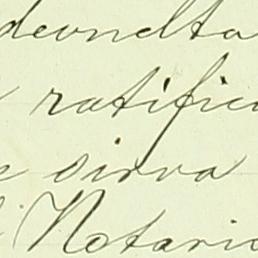 devuelta
ratific
sirva
Notario